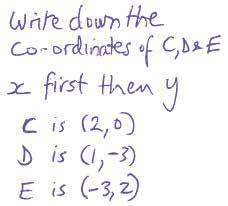 Write down the
Co-ordinates of C,D & E
x first then y
C is (2,0)
D is (1,-3)
E is (-3,2)